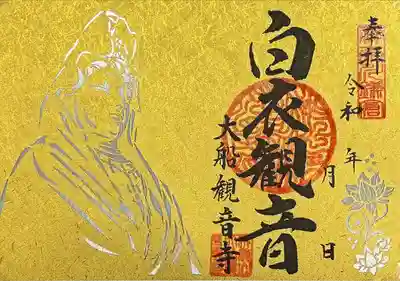 奉拝
令和 年
月
日
白衣観音
大船観音寺